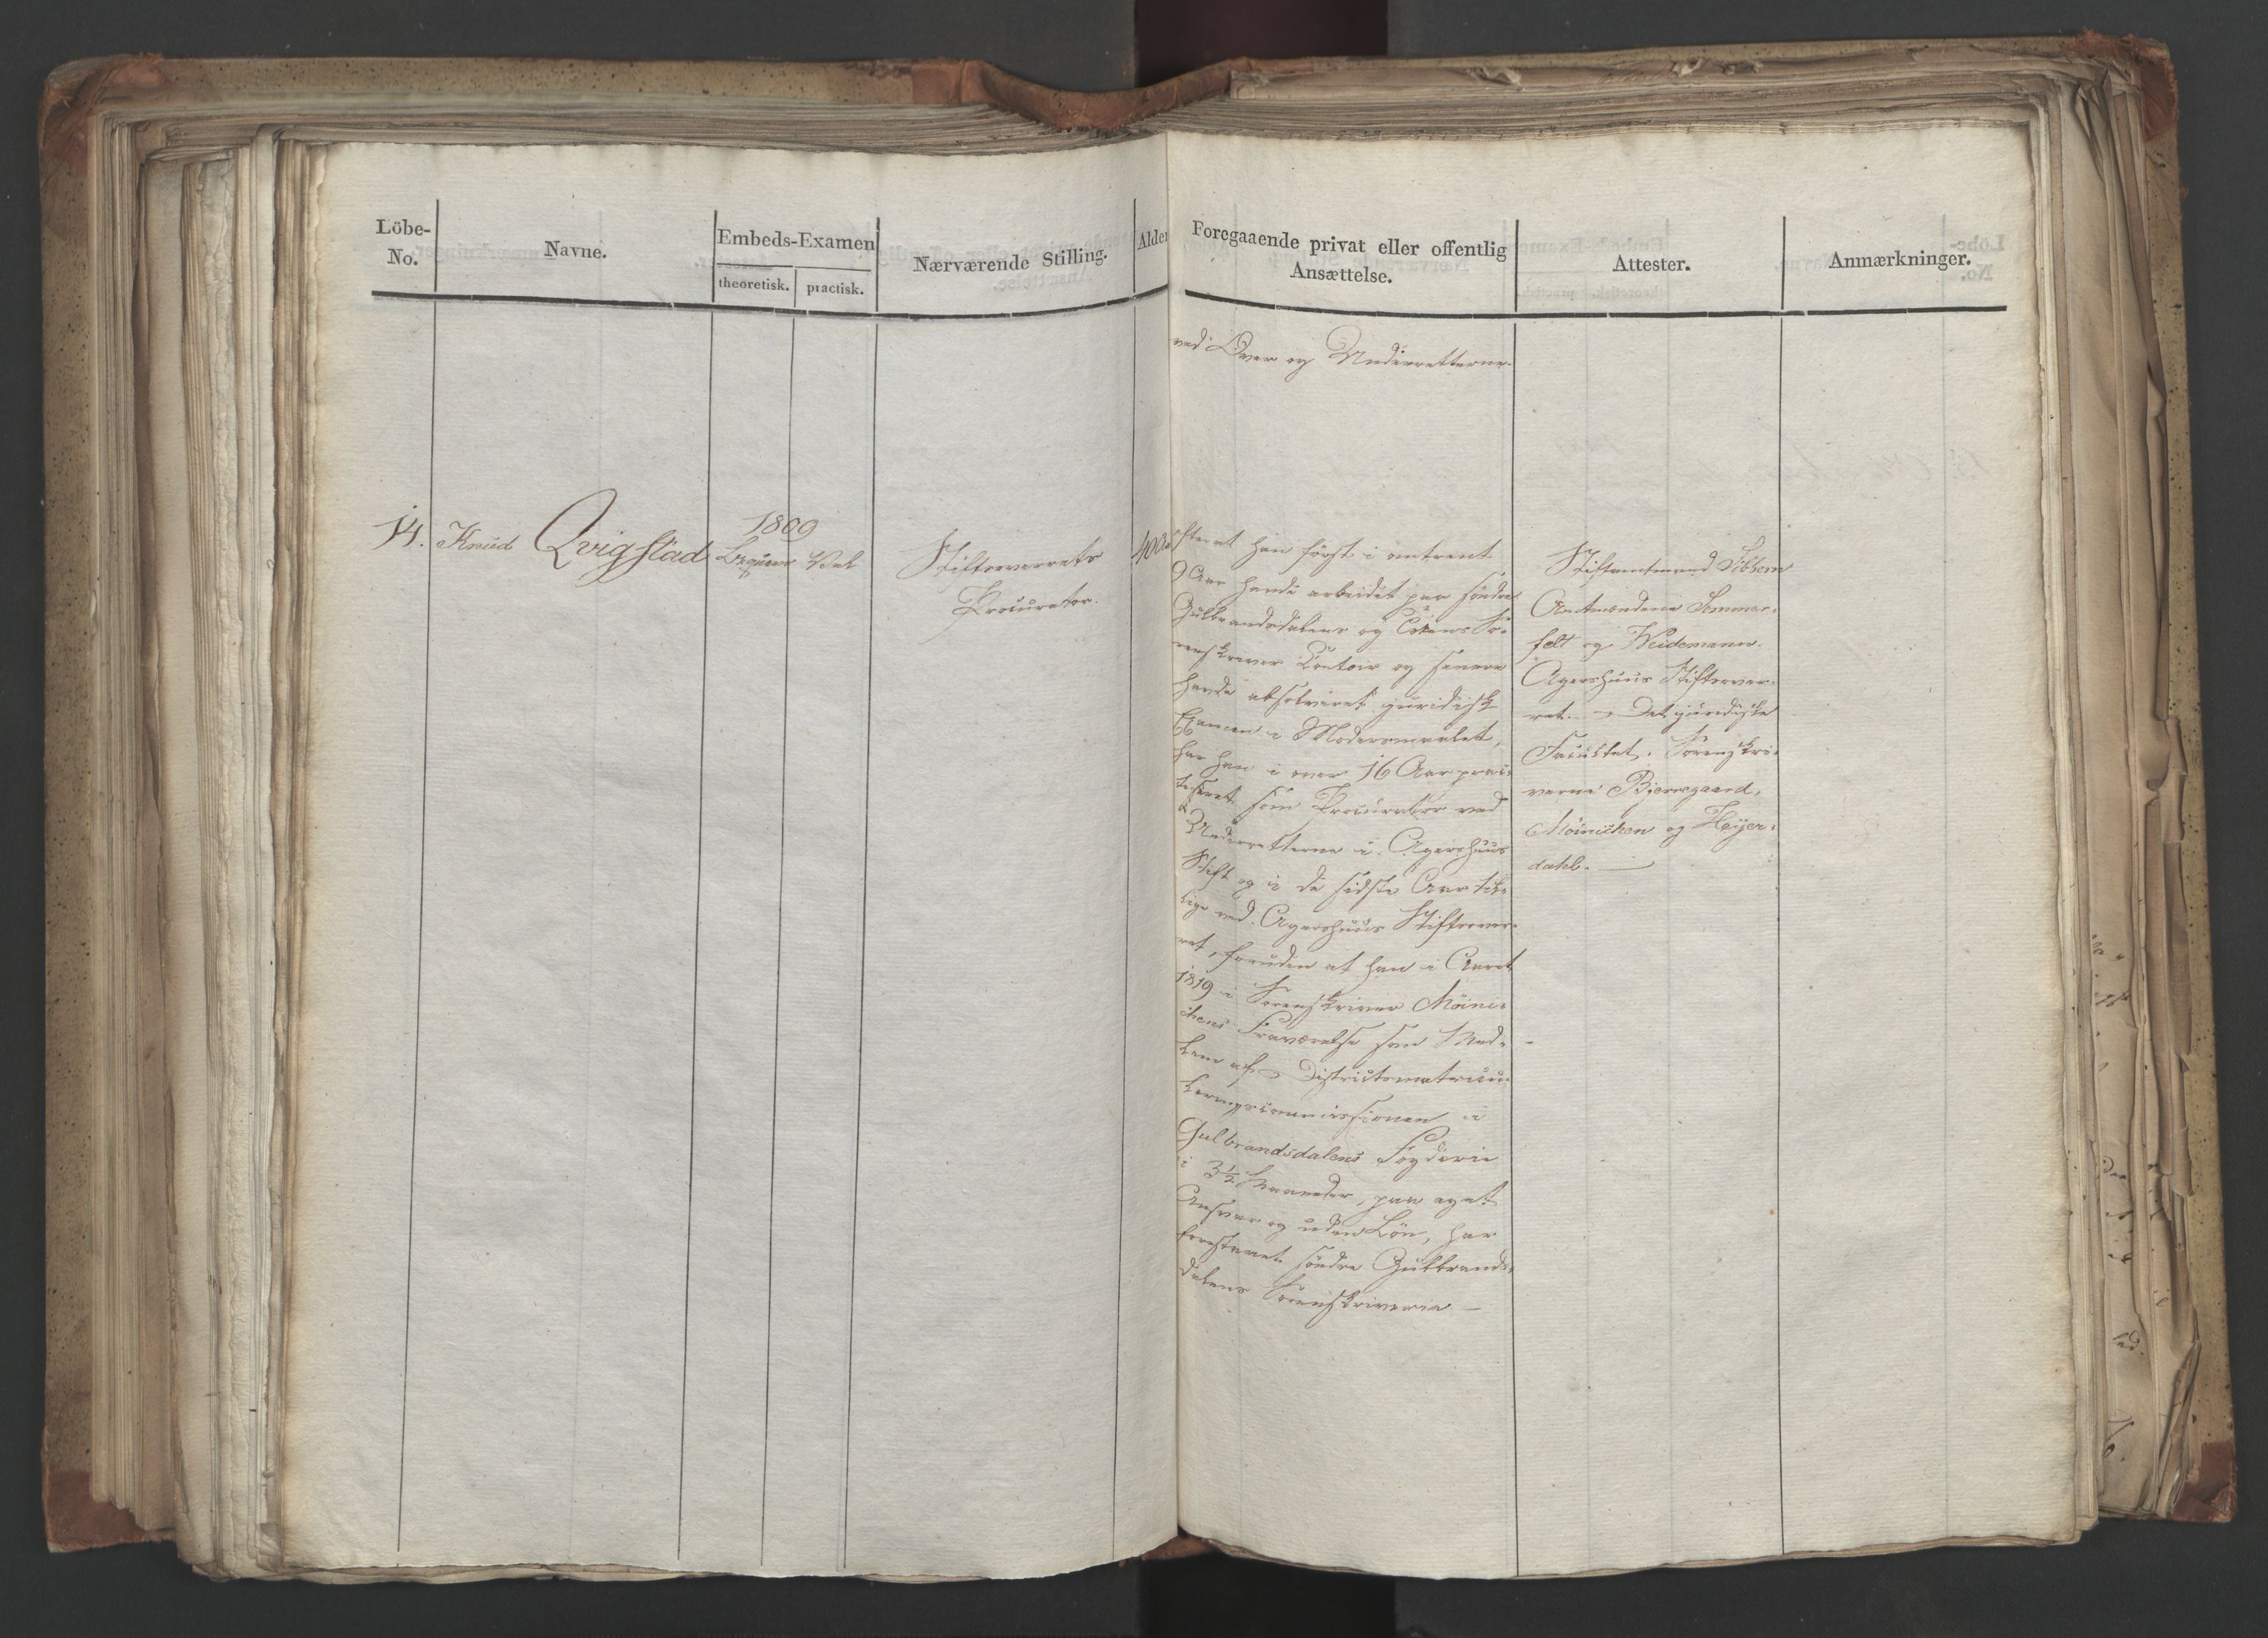 Löbe-
No.
Navne.
Embeds-Examen
theoretisk.
practisk.
Nærværende Stilling.
Alder
Foregaaende privat eller offentlig
Ansættelse.
Attester.
Anmærkninger.
ved Over og Underretterne.
14.
Knud Qvigstad
1809
Beqvem Vel
Stiftsoverrets
Procurator.
40 Aar
Efterat han først i omtrent
9 Aar havde arbeidet paa søndre
Gulbrandsdalens og Sø-
renskriver Contoir og senere
havde absolveret juridisk
Examen i Modersmaalet,
har han i over 16 Aar prac-
tiseret som Procurator ved
Underretterne i Agershuus
Stift og i de sidste Aar til-
lige ved Agershuus Stiftsover-
ret, foruden at han i Aaret
1819 i Sorenskriver Möini-
chens Fraværelse som Med-
lem af Districtsmatricu-
leringscommissionen i
Gulbrandsdalens Fogderie
i 3½ Maaneder, paa eget
Ansvar og uden Løn, har
forestaaet søndre Gulbrands-
dalens Sorenskriverie —
Stiftamtmand Sibbern
Amtmændene Sommer-
felt og Weidemann.
Agershuus Stiftsover-
ret. — Det juridiske
Facultet. Sorenskri-
verne Bjerregaard,
Möinichen og Heyer-
dahl. —